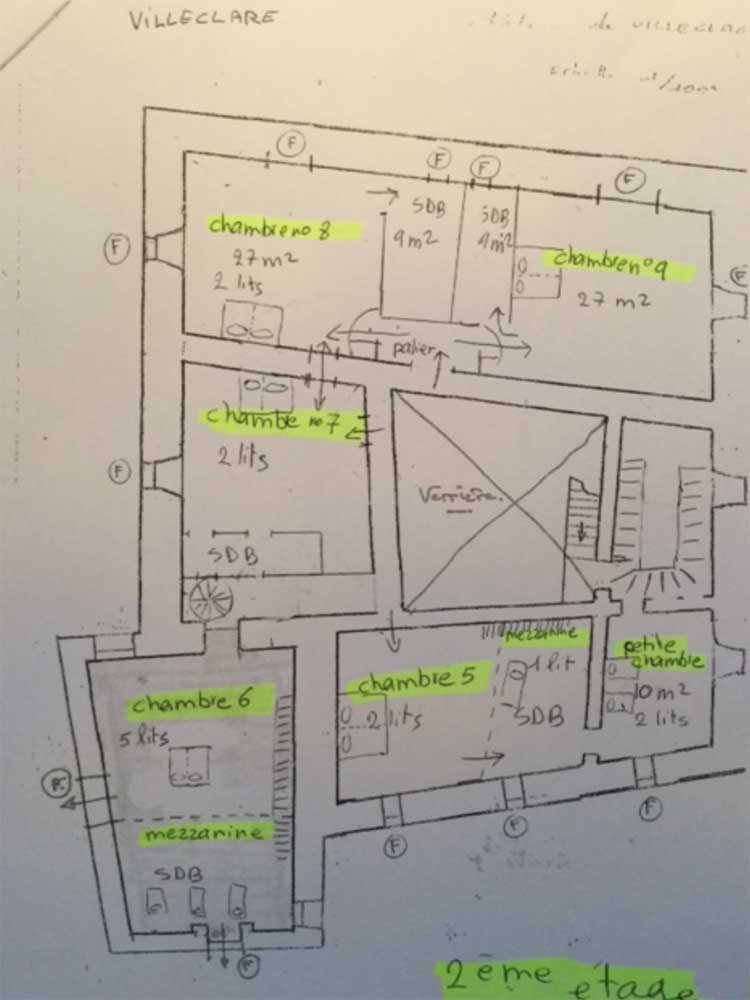 VILLECLARE
de VILLECLAR
F
F
F
F
SDB
SDB
chambre no 8
9 m²
9 m²
F
27 m²
chambre n° 9
F
2 lits
27 m²
palier
chambe no 7
2 lits
F
Verrière.
SDB
mezzanine
petite
chambre
chambre 5
1 lit
chambre 6
2 lits
SDB
10 m²
2 lits
5 lits
F
mezzanine
F
F
F
SDB
F
2ème étage